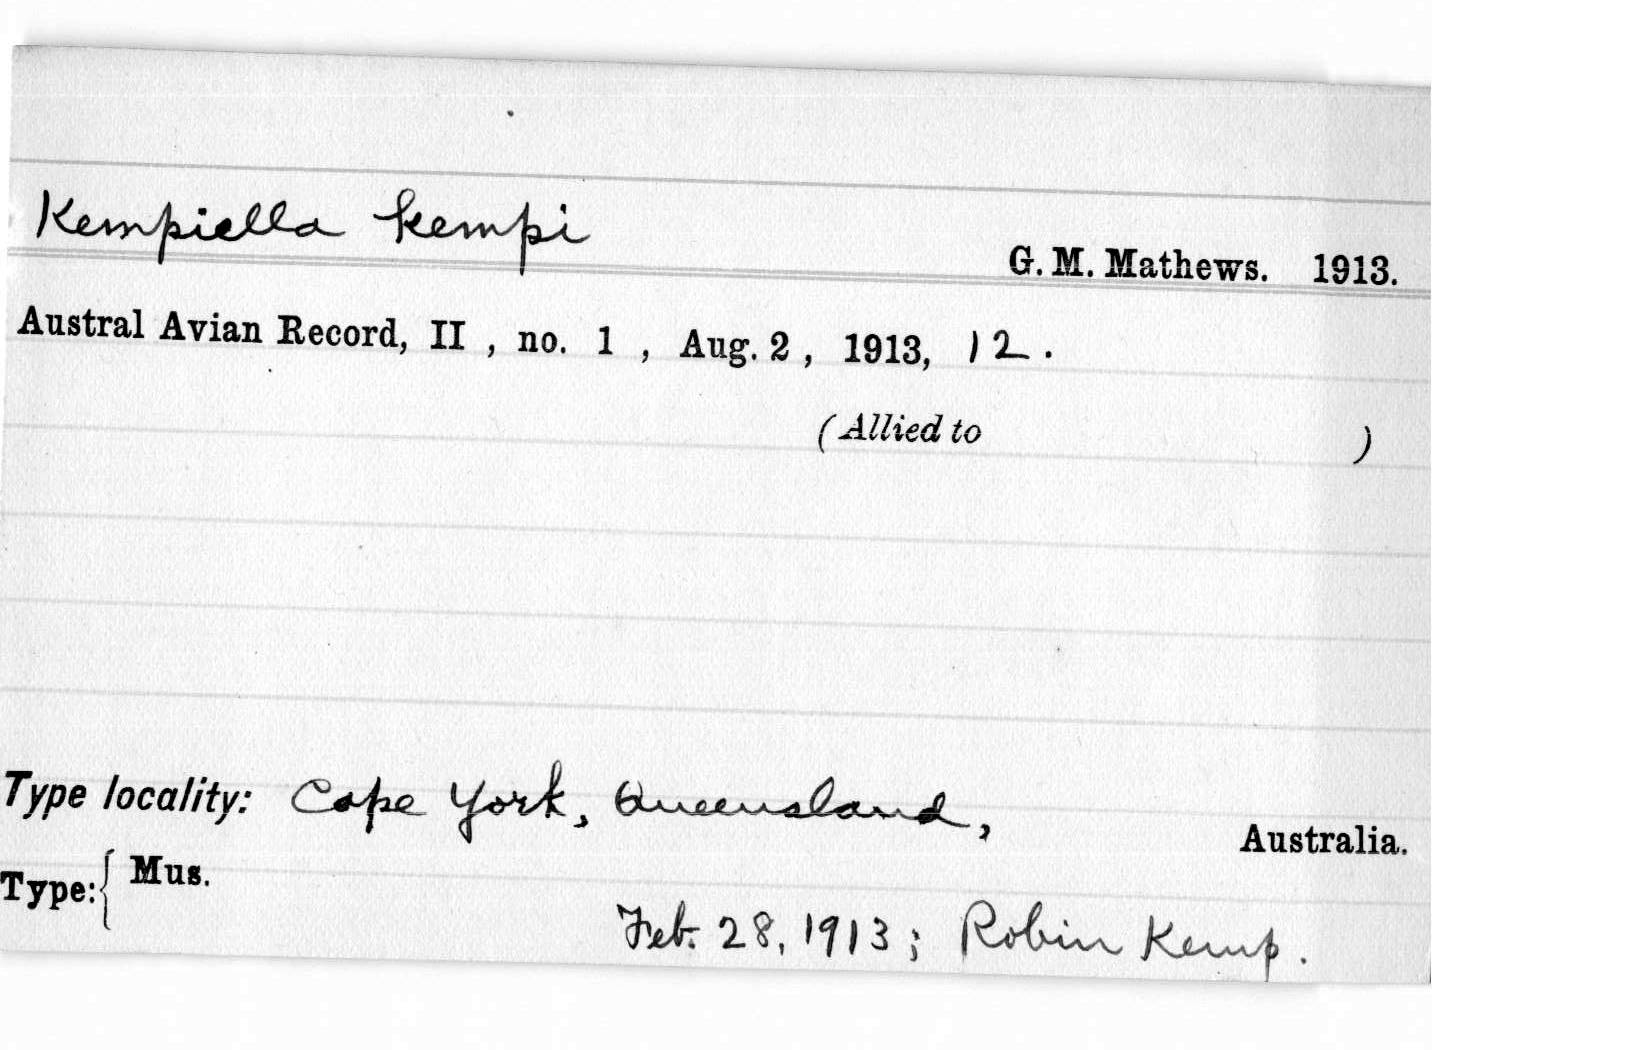 Kempiella kempi
G. M. Mathews. 1913.
Austral Avian Record, II , no. 1 , Aug. 2 , 1913, 12.
(Allied to )
Type locality: Cape York, Queensland,
Australia.
Type: { Mus.
Feb. 28, 1913; Robin Kemp.